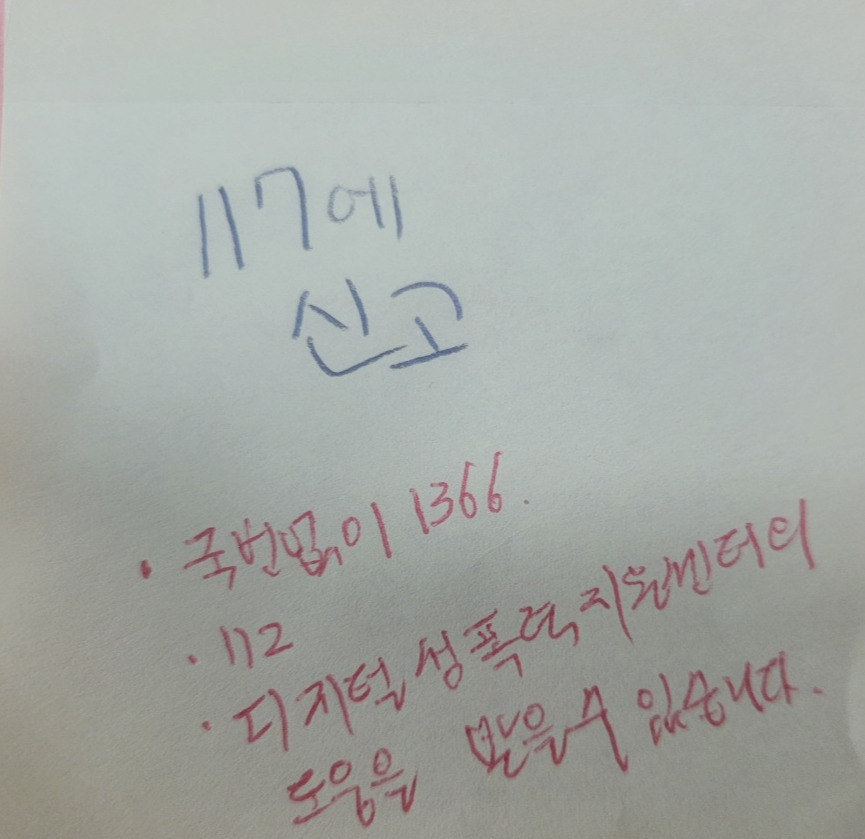 117에
신고
· 국번없이 1366.
· 112
· 디지털 성폭력 지원센터의
도움을 받을 수 있습니다.